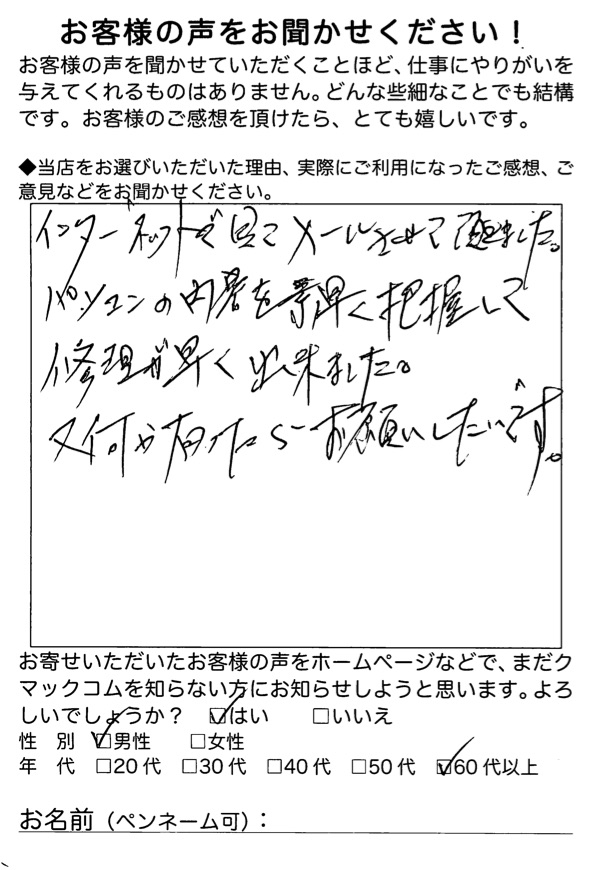 お客様の声をお聞かせください！
お客様の声を聞かせていただくことほど、仕事にやりがいを
与えてくれるものはありません。どんな些細なことでも結構
です。お客様のご感想を頂けたら、とても嬉しいです。
◆当店をお選びいただいた理由、実際にご利用になったご感想、ご
意見などをお聞かせください。
インターネットで見てメールさせて頂きました。
パソコンの内容を素早く把握して
修理が早く出来ました。
又何か有ったらお願いしたいです。
お寄せいただいたお客様の声をホームページなどで、まだク
マックコムを知らない方にお知らせしようと思います。よろ
しいでしょうか？ ☑はい □いいえ
性 別 ☑男性 □女性
年 代 □20代 □30代 □40代 □50代 ☑60代以上
お名前（ペンネーム可）：